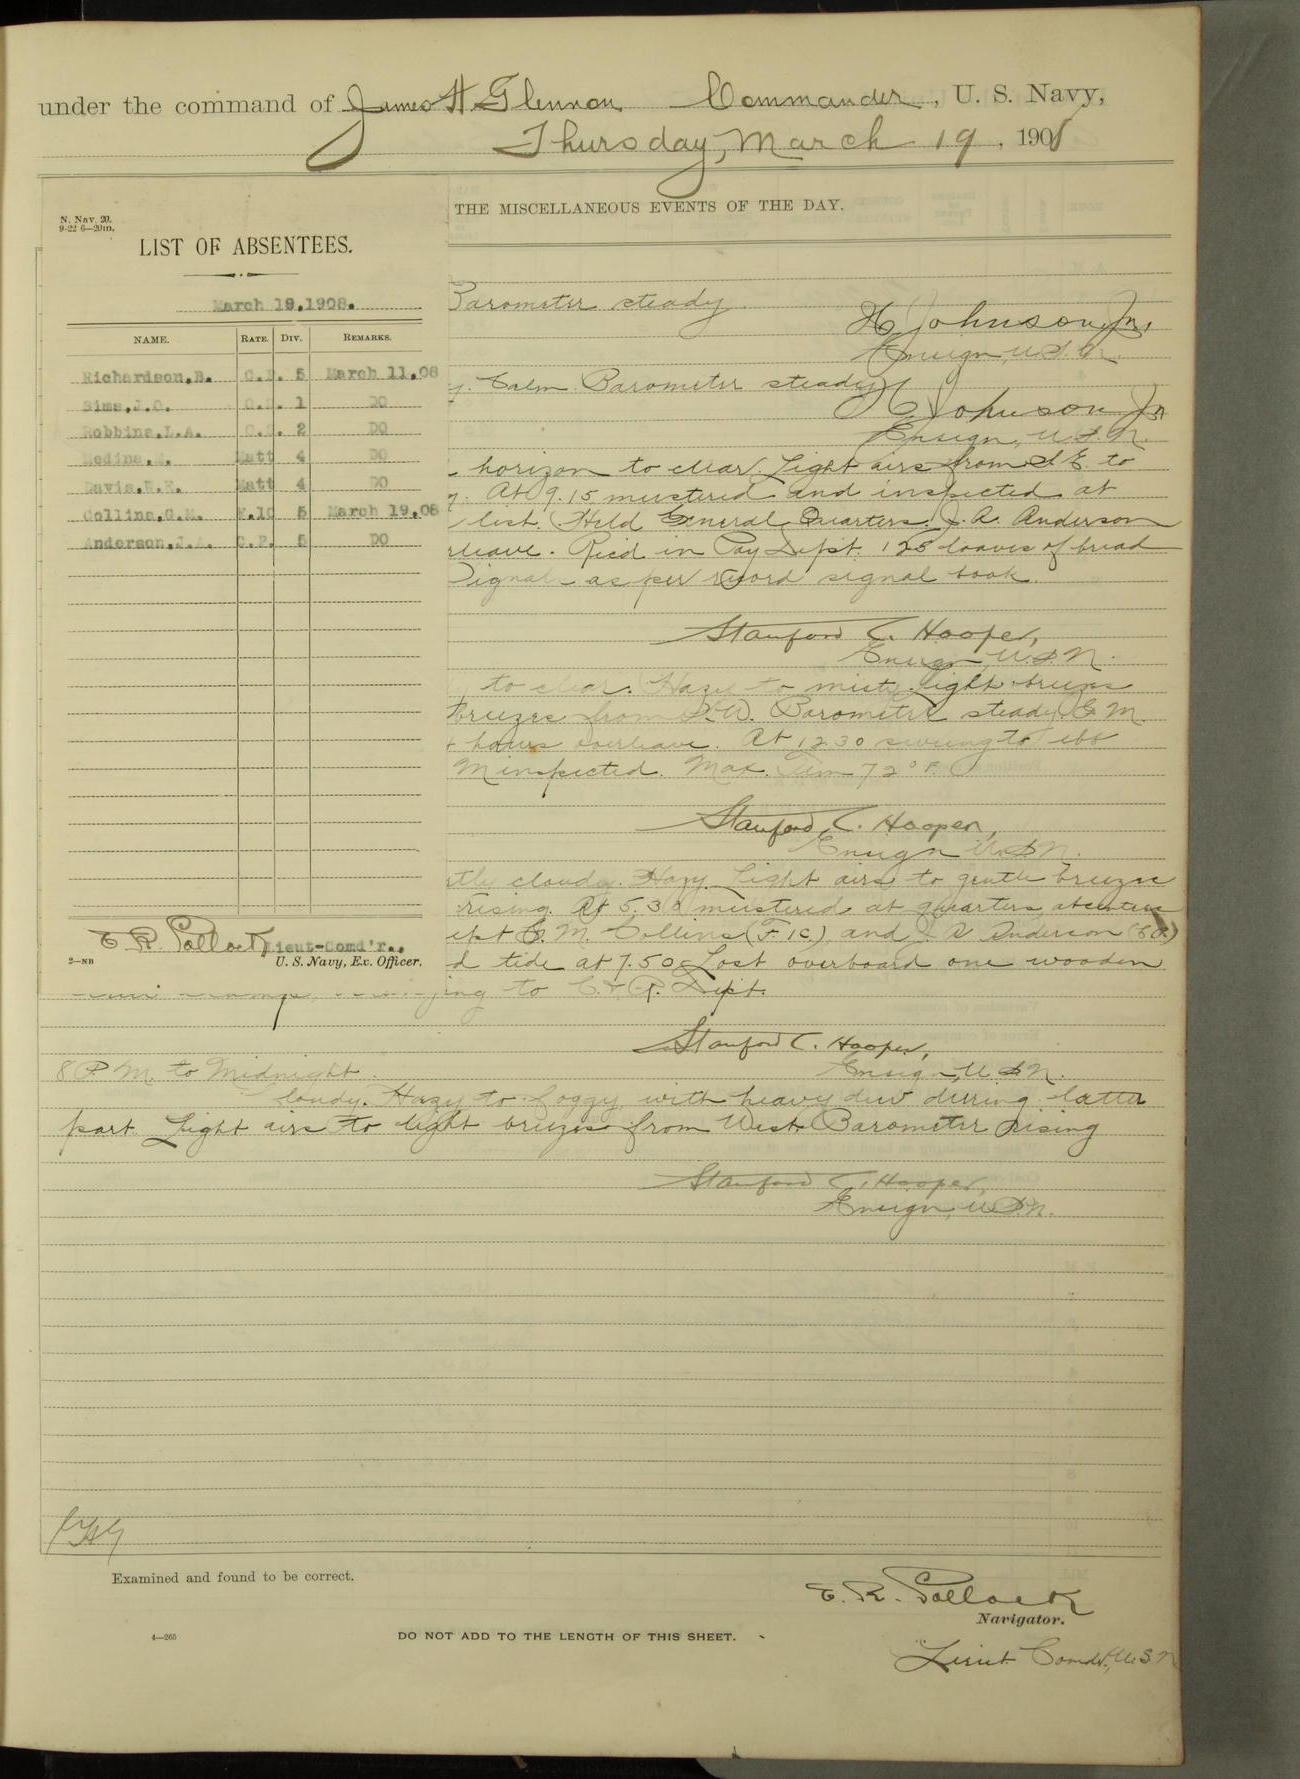 under the command of James H Glennon Commander, U. S. Navy,
Thursday, March 19, 1908
THE MISCELLANEOUS EVENTS OF THE DAY.
N. Nav. 20.
9-22 6—20m.
LIST OF ABSENTEES.
March 19,1908.
NAME. RATE. DIV. REMARKS.
Richardson,B. C.P. 5 March 11,08
Sims,J.O. 1 DO
Robbins,L.A. 2 DO
Medina,M. Matt 4 DO
Davis, Matt 4 DO
Collins,G.M. F.1C 5 March 19,08
Anderson,J.A. C.P. 5 DO
E. R. Pollock Lieut-Comd'r.,
2—NB U. S. Navy, Ex. Officer.
Barometer steady
H Johnson Jr,
Ensign, U.S.N.
y. Calm Barometer steady
H Johnson Jr
Ensign, U.S.N.
horizon to clear. Light airs from S E to
At 9.15 mustered and inspected at
list. Held General Quarters. J. A. Anderson
rleave. Rec'd in Pay Dep't. 125 loaves of bread
Signals as per record signal book.
Stanford C. Hooper,
Ensign, U.S.N.
to clear. Hazy to misty. light breeze
breezes from S.W. Barometer steady. G. M.
hours overleave. At 12 30 swung to ebb
M inspected. Max. Tem 72° F.
Stanford C. Hooper,
Ensign U.S.N.
rtly cloudy. Hazy. Light airs to gentle breeze
rising. At 5.30 mustered at quarters, absentees
ept G. M. Collins (F.1C.) and J. A. Anderson (C.P.)
d tide at 7.50 Lost overboard one wooden
ing to C. & R. Dept.
Stanford C. Hooper,
Ensign, U.S.N.
8 P.M. to Midnight
Cloudy. Hazy to foggy, with heavy dew during latter
part. Light airs to light breezes from West. Barometer rising
Stanford C. Hooper,
Ensign, U.S.N.
JHG
Examined and found to be correct.
E. R. Pollock
Navigator.
4—265
DO NOT ADD TO THE LENGTH OF THIS SHEET.
Lieut. Comdr, U.S.N